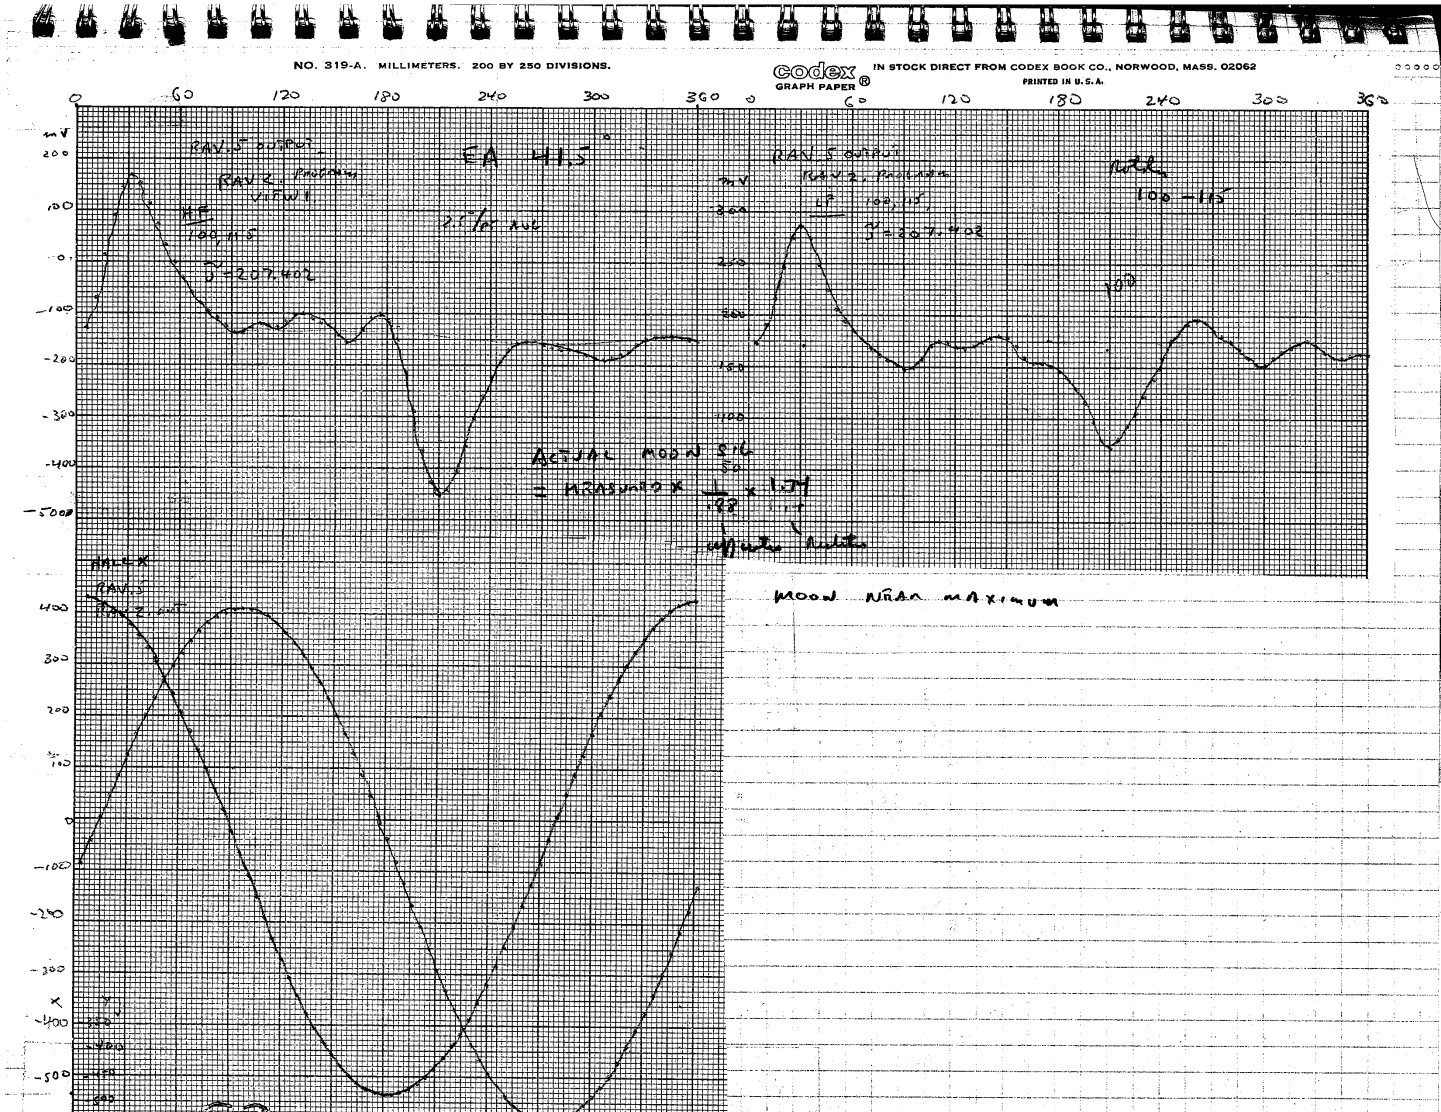 NO. 319-A. MILLIMETERS. 200 BY 250 DIVISIONS.
codex
GRAPH PAPER ®
IN STOCK DIRECT FROM CODEX BOOK CO., NORWOOD, MASS. 02062
PRINTED IN U.S.A.
0 60 120 180 240 300 360
0 60 120 180 240 300 360
mV
200
100
0
-100
-200
-300
-400
-500
RAV. 5 OUTPUT
RAV 2. PROGRAM
VIEW 1
HF
100, 115
= 207.402
EA 41.5°
RAV. 5 OUTPUT
RAV 2. PROGRAM
LF 100, 115,
= 207.402
mV
300
250
200
150
100
50
100 - 115
100
ACTUAL MOON SIG
= MEASURED X 1/.88 X 1.74
MOON NEAR MAXIMUM
HALL X
RAV. 5
RAV 2. OUT
400
300
200
100
0
-100
-200
-300
X Y
-400
-400
-500
-500